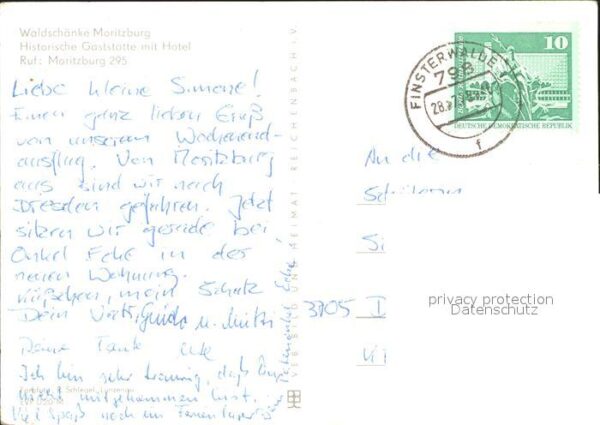 Waldschänke Moritzburg
Historische Gaststätte mit Hotel
Ruf: Moritzburg 295
Liebe kleine Simone!
Einen ganz lieben Gruß
von unserem Wochenend-
ausflug. Von Moritzburg
aus sind wir nach
Dresden gefahren. Jetzt
sitzen wir gerade bei
Onkel Ecke in der
neuen Wohnung.
Küßchen, mein Schatz
Dein Vati, Guido u. Mutti
Deine Tante Ute
Ich bin sehr traurig, daß Du
nicht mitgekommen bist.
Viel Spaß noch im Ferienlager
Dein Patenonkel Ecke
Schlegel, Lunzenau
VEB BILD UND HEIMAT REICHENBACH i. V.
FINSTERWALDE
798
28.
f
10
DEUTSCHE DEMOKRATISCHE REPUBLIK
An die
Si
3705
privacy protection
Datenschutz